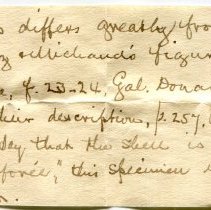 differs greatly fro
Michaud's figur
f. 23-24, Gal. Douai
their description, p. 257,
say, that the shell is
forée," this specimen